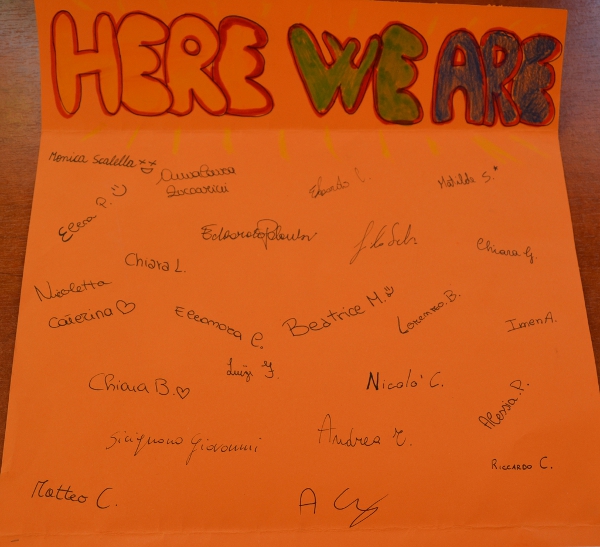 HERE WE ARE
Monica Scalella
Annalaura
Zaccarini
Edoardo C.
Matilda S.*
Elena P.
Edoardo
Chiara G.
Chiara L.
Nicoletta
Caterina
Eleonora C.
Beatrice M.
Lorenzo B.
Imen A.
Luigi F.
Chiara B.
Nicolò C.
Alessia P.
Sicignano Giovanni
Andrea R.
Riccardo C.
Matteo C.
A